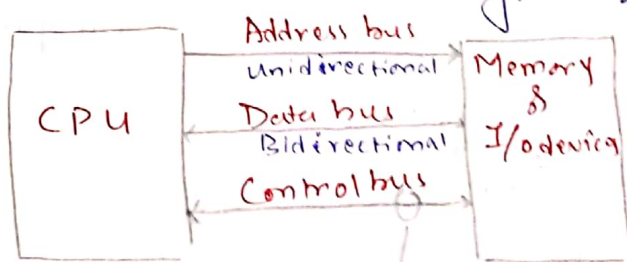 Address bus
Unidirectional
CPU
Data bus
Bidirectional
Control bus
Memory
&
I/o device